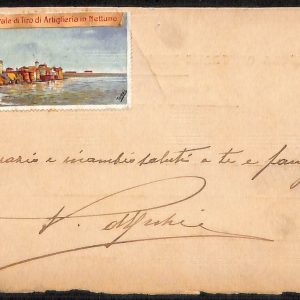 ale di Tiro di Artiglieria in Nettuno
razio e ricambio saluti a te e fam